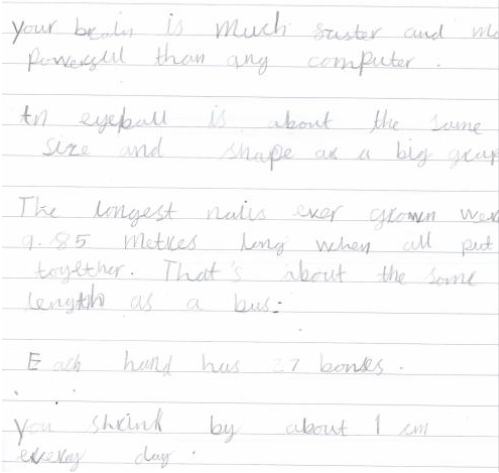 your brain is much faster and mo
powerful than any computer.
An eyeball is about the same
size and shape as a big grap
The longest nails ever grown wer
9.85 metres long when all put
together. That's about the same
length as a bus.
Each hand has 27 bones.
you shrink by about 1 cm
every day.